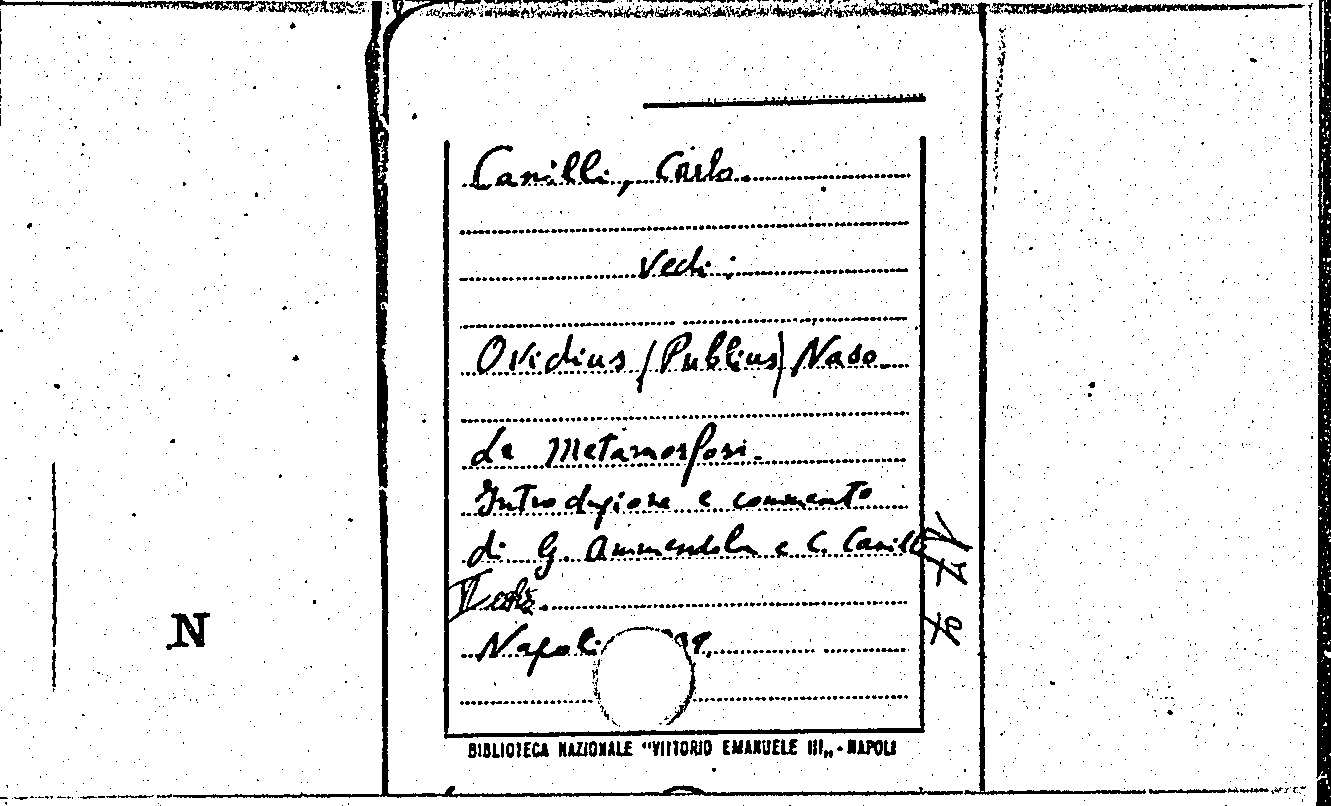 Canilli, Carlo.
Vedi:
Ovidius (Publius) Naso
Le Metamorfosi.
Introduzione e commento
di G. Ammendola e C. Canilli
II ediz.
Napoli
N
BIBLIOTECA NAZIONALE "VITTORIO EMANUELE III„ - NAPOLI